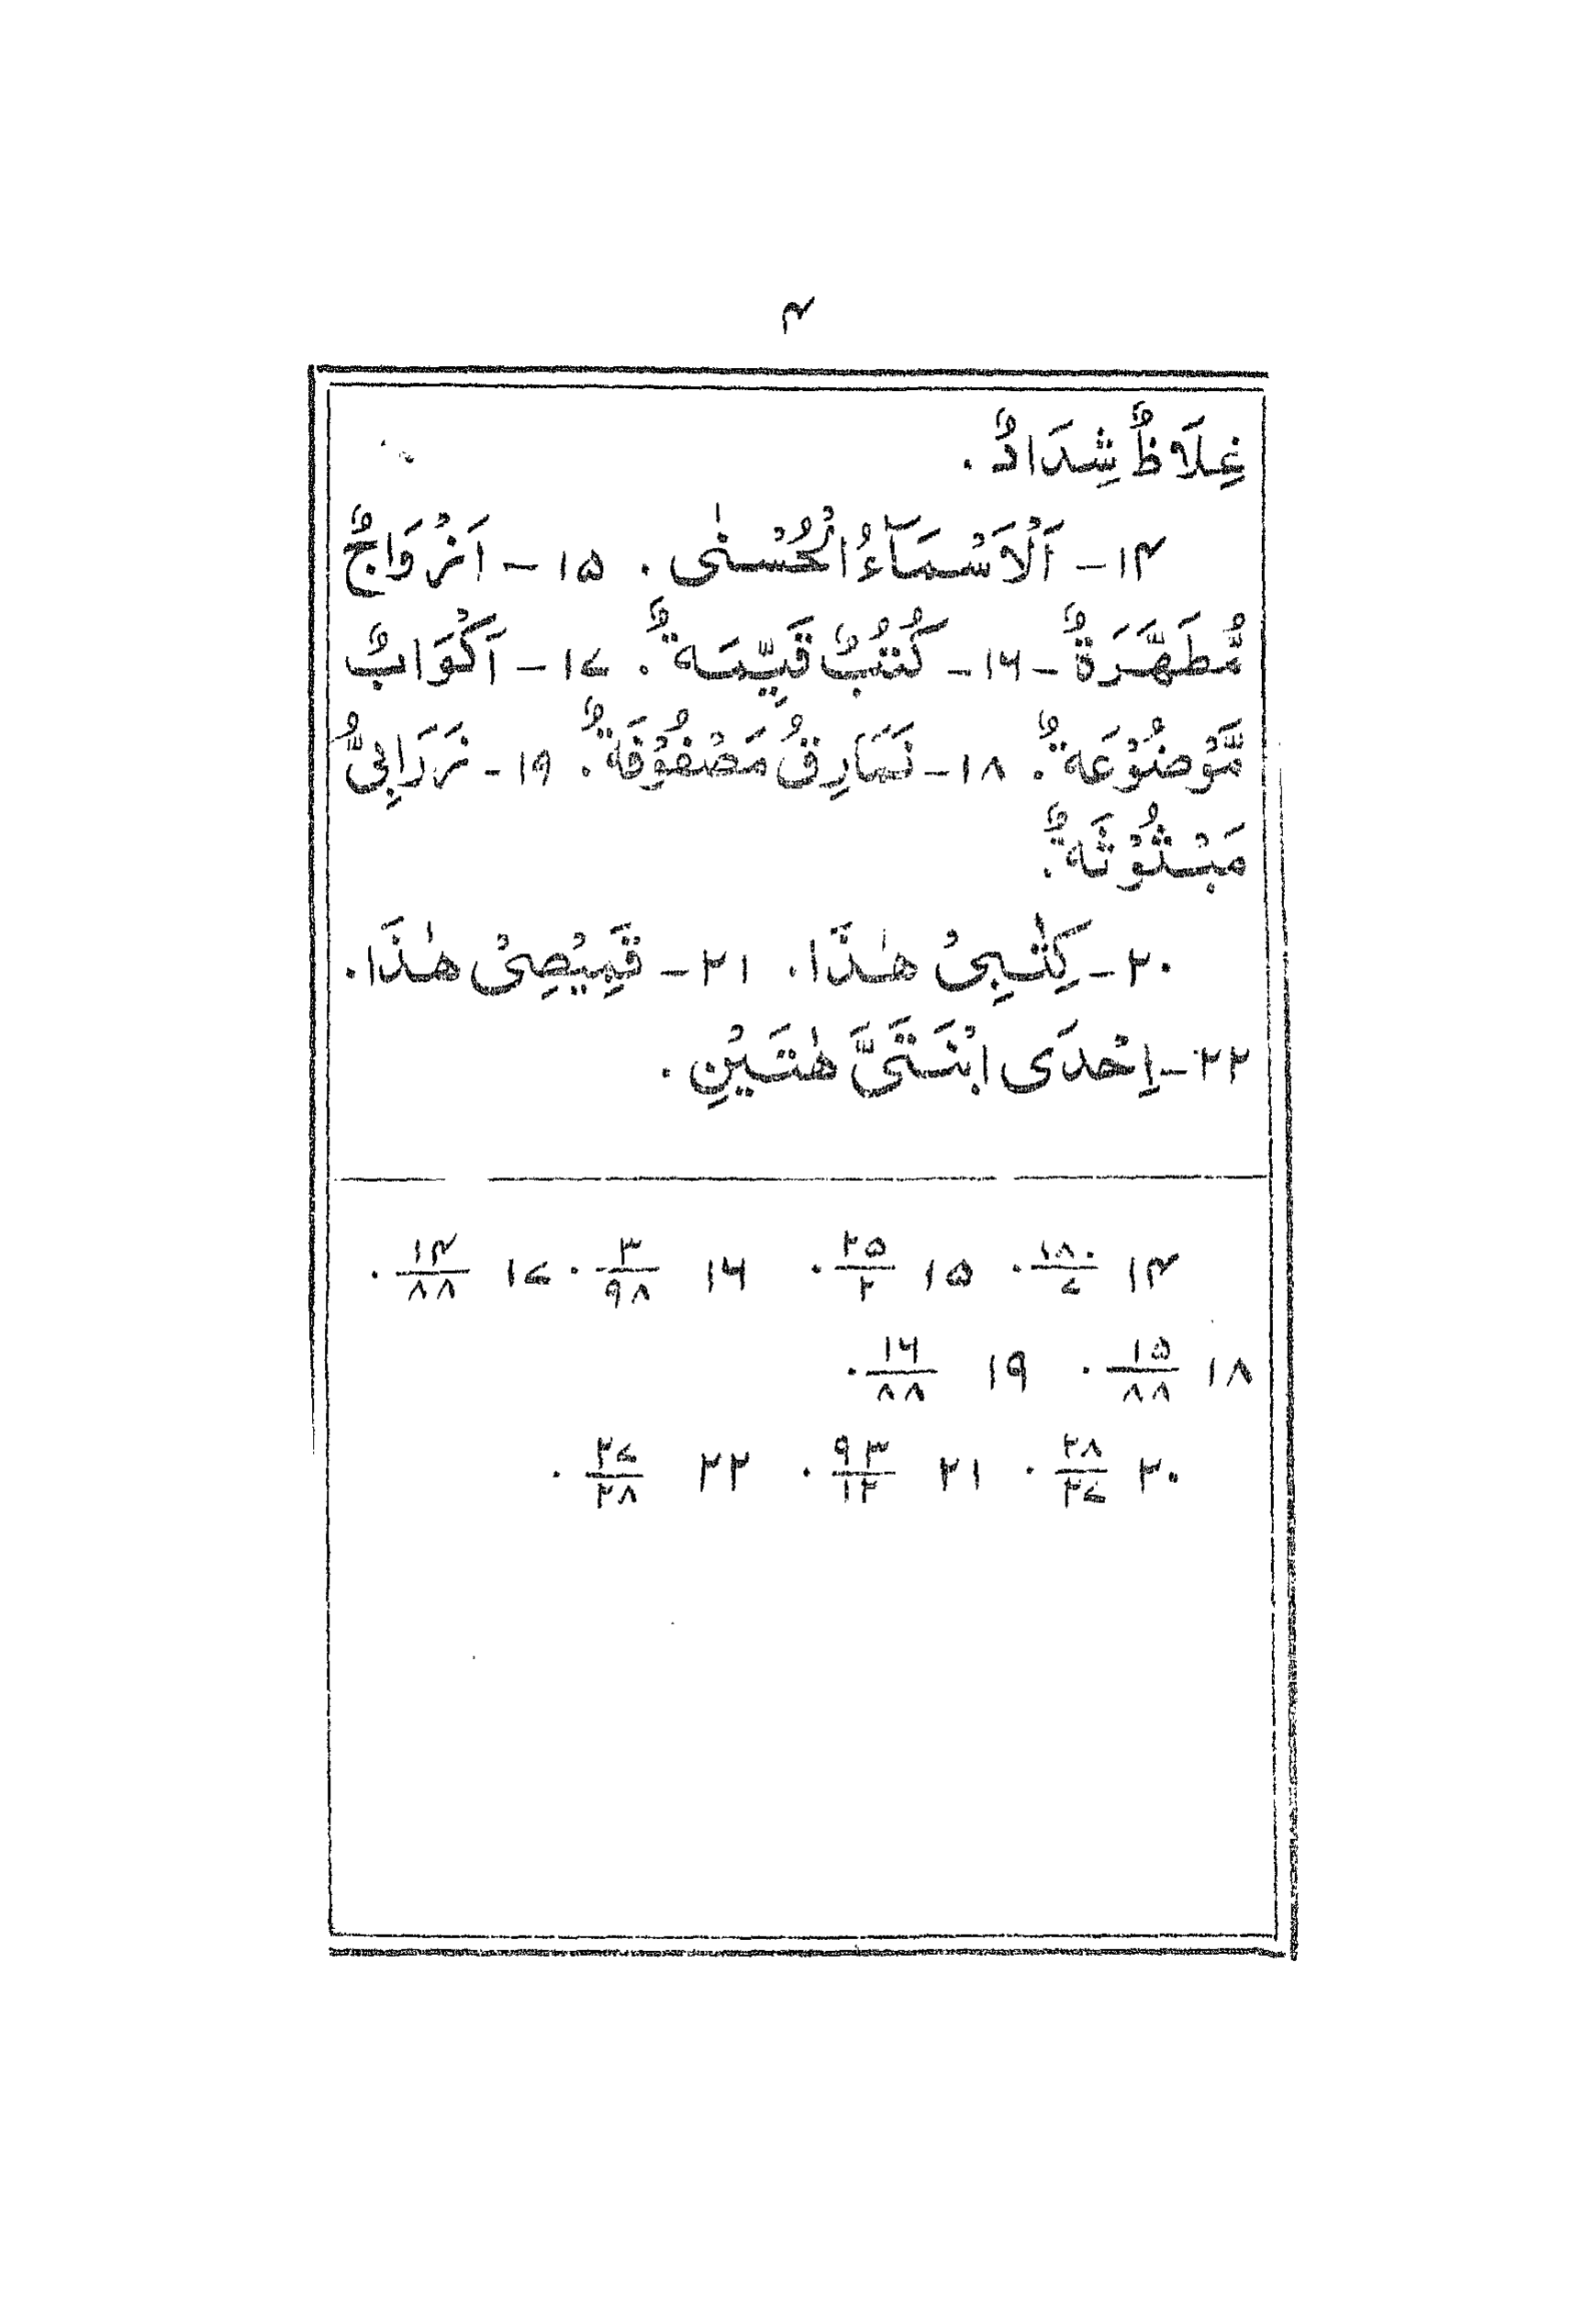 ۴
غِلَاظٌ شِدَادٌ ۰
۱۴- اَلْاَسْمَآءُ الْحُسْنٰى ۰ ۱۵- اَزْوَاجٌ
مُّطَهَّرَةٌ - ۱۶- كُتُبٌ قَيِّمَةٌ ۰ ۱۷- اَكْوَابٌ
مَّوْضُوْعَةٌ ۰ ۱۸- نَمَارِقُ مَصْفُوْفَةٌ ۰ ۱۹- زَرَابِيُّ
مَبْثُوْثَةٌ ۰
۲۰- كِتٰبِىْ هٰذَا ۰ ۲۱- قَمِيْصِىْ هٰذَا ۰
۲۲- اِحْدَى ابْنَتَىَّ هٰتَيْنِ ۰
۱۴ ۱۸۰/۷ ۰ ۱۵ ۲۵/۲ ۰ ۱۶ ۳/۹۸ ۰ ۱۷ ۱۴/۸۸ ۰
۱۸ ۱۵/۸۸ ۰ ۱۹ ۱۶/۸۸ ۰
۲۰ ۲۸/۲۷ ۰ ۲۱ ۹۳/۱۲ ۰ ۲۲ ۲۷/۲۸ ۰